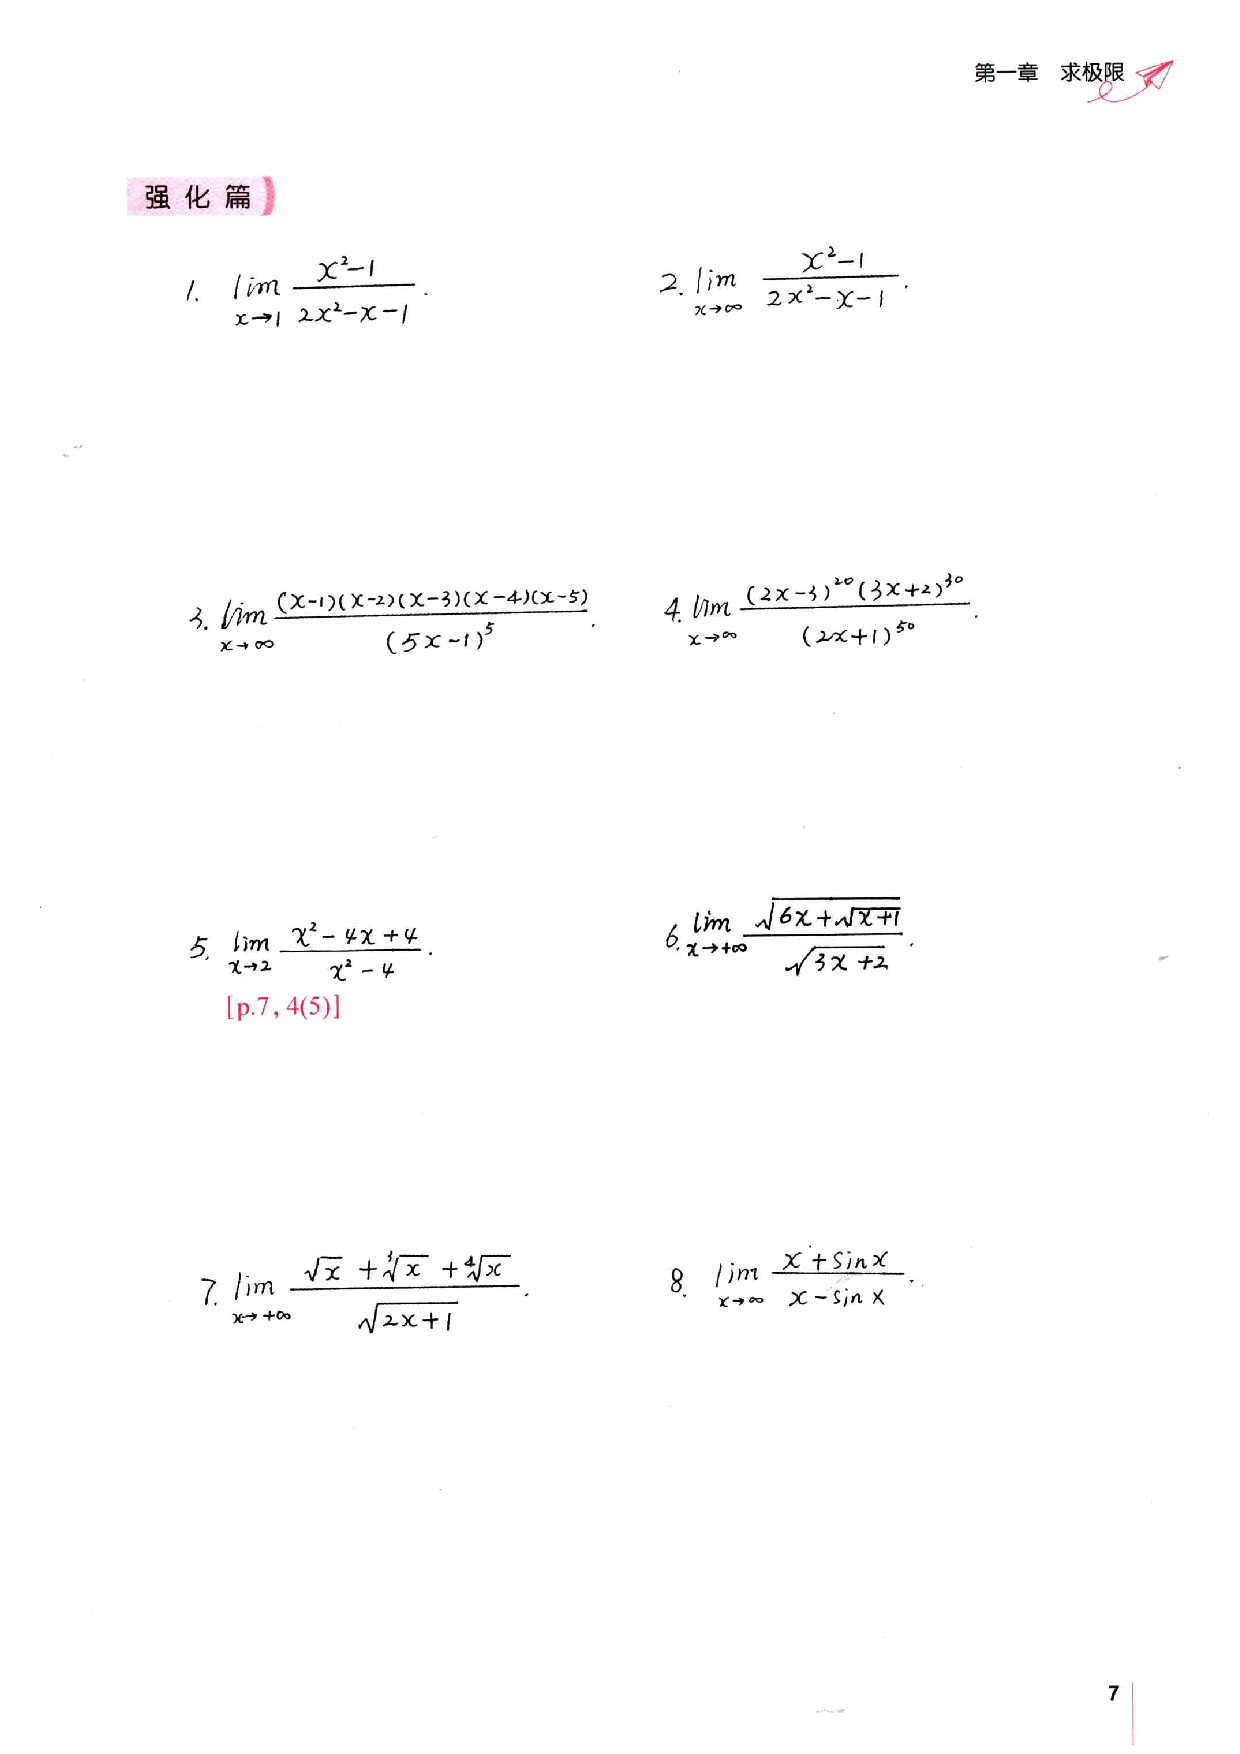 第一章 求极限
强化篇
1. lim x→1 (x²-1)/(2x²-x-1).
2. lim x→∞ (x²-1)/(2x²-x-1).
3. lim x→∞ (x-1)(x-2)(x-3)(x-4)(x-5)/(5x-1)⁵.
4. lim x→∞ (2x-3)²⁰(3x+2)³⁰/(2x+1)⁵⁰.
5. lim x→2 (x²-4x+4)/(x²-4).
[p.7, 4(5)]
6. lim x→+∞ √(6x+√(x+1))/√(3x+2).
7. lim x→+∞ (√x+∛x+∜x)/√(2x+1).
8. lim x→∞ (x+sin x)/(x-sin x).
7